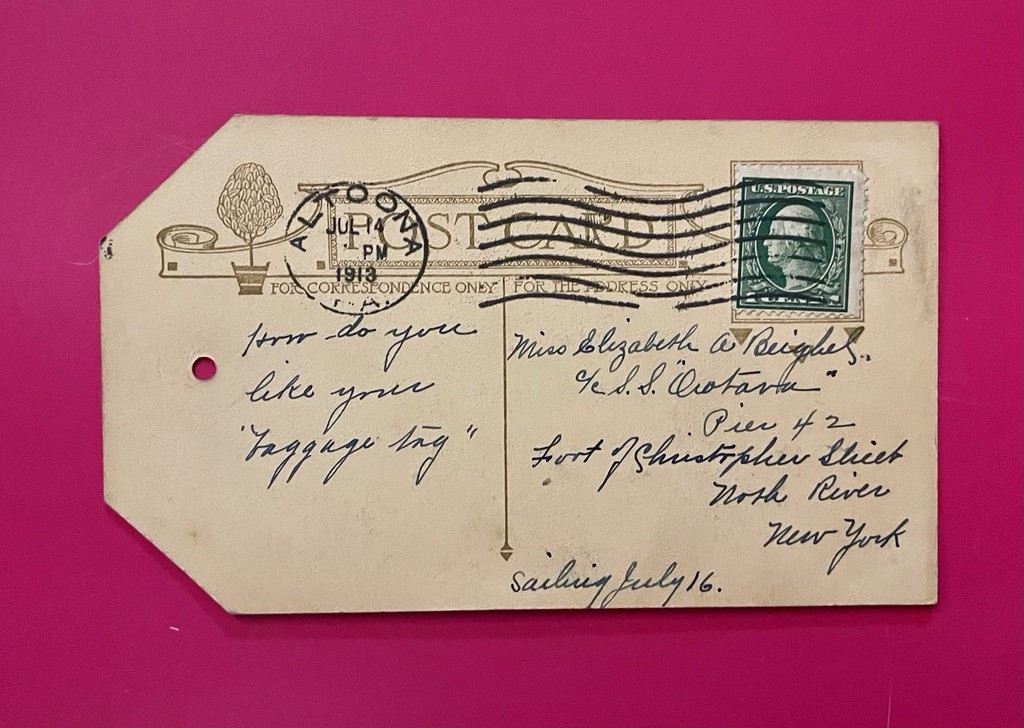 POST CARD
ALTOONA
JUL 14
PM
1913
P.A.
U.S. POSTAGE
FOR CORRESPONDENCE ONLY
FOR THE ADDRESS ONLY
How do you
like your
"baggage tag"
Miss Elizabeth A Beighel,
c/o S.S. "Orotava"
Pier 42
Foot of Christopher Street
North River
New York
Sailing July 16.